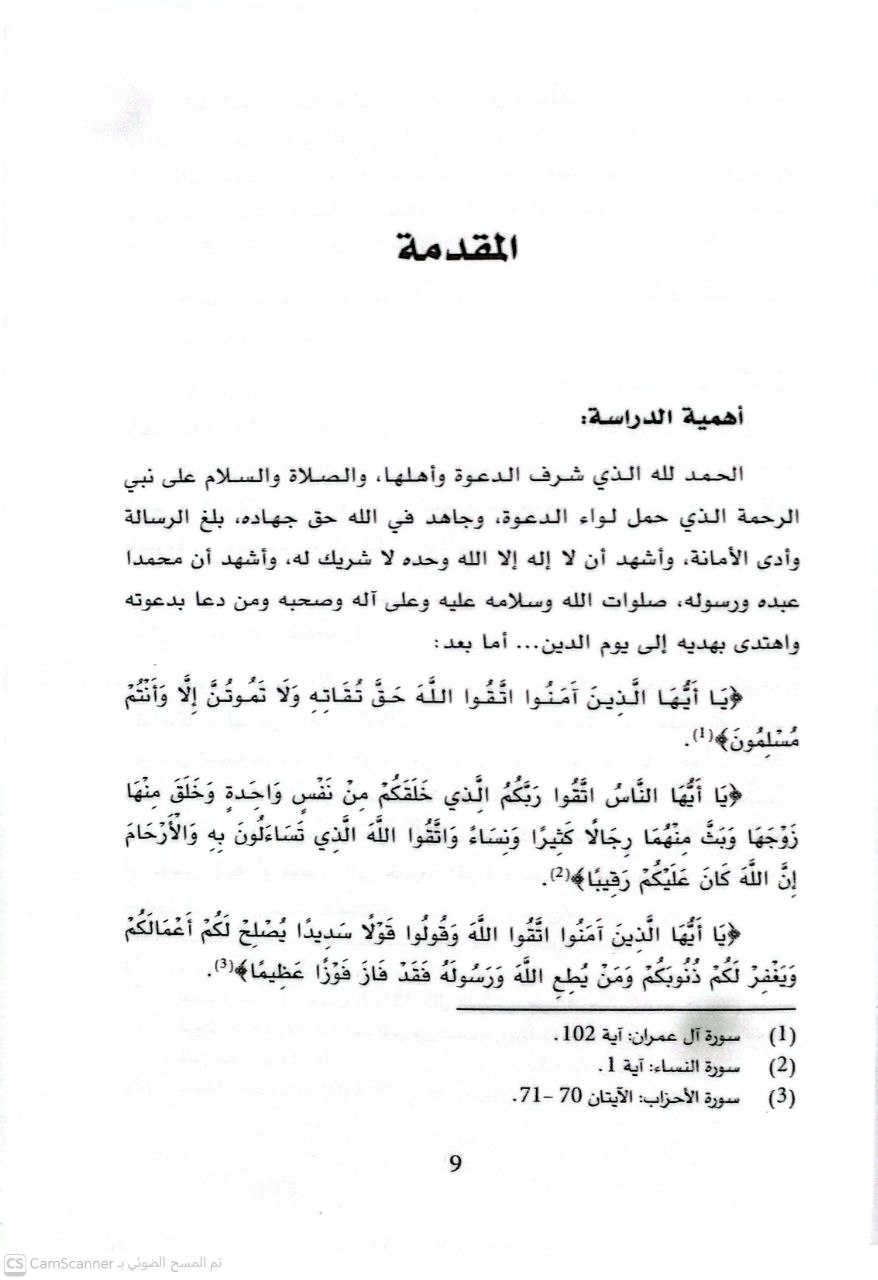 المقدمة
أهمية الدراسة:
الحمد لله الذي شرف الدعوة وأهلها، والصلاة والسلام على نبي
الرحمة الذي حمل لواء الدعوة، وجاهد في الله حق جهاده، بلغ الرسالة
وأدى الأمانة، وأشهد أن لا إله إلا الله وحده لا شريك له، وأشهد أن محمدا
عبده ورسوله، صلوات الله وسلامه عليه وعلى آله وصحبه ومن دعا بدعوته
واهتدى بهديه إلى يوم الدين... أما بعد:
﴿يَا أَيُّهَا الَّذِينَ آمَنُوا اتَّقُوا اللَّهَ حَقَّ تُقَاتِهِ وَلَا تَمُوتُنَّ إِلَّا وَأَنْتُمْ
مُسْلِمُونَ﴾(1).
﴿يَا أَيُّهَا النَّاسُ اتَّقُوا رَبَّكُمُ الَّذِي خَلَقَكُمْ مِنْ نَفْسٍ وَاحِدَةٍ وَخَلَقَ مِنْهَا
زَوْجَهَا وَبَثَّ مِنْهُمَا رِجَالًا كَثِيرًا وَنِسَاءً وَاتَّقُوا اللَّهَ الَّذِي تَسَاءَلُونَ بِهِ وَالْأَرْحَامَ
إِنَّ اللَّهَ كَانَ عَلَيْكُمْ رَقِيبًا﴾(2).
﴿يَا أَيُّهَا الَّذِينَ آمَنُوا اتَّقُوا اللَّهَ وَقُولُوا قَوْلًا سَدِيدًا يُصْلِحْ لَكُمْ أَعْمَالَكُمْ
وَيَغْفِرْ لَكُمْ ذُنُوبَكُمْ وَمَنْ يُطِعِ اللَّهَ وَرَسُولَهُ فَقَدْ فَازَ فَوْزًا عَظِيمًا﴾(3).
(1) سورة آل عمران: آية 102.
(2) سورة النساء: آية 1.
(3) سورة الأحزاب: الآيتان 70 –71.
9
CS CamScanner تم المسح الضوئي بـ